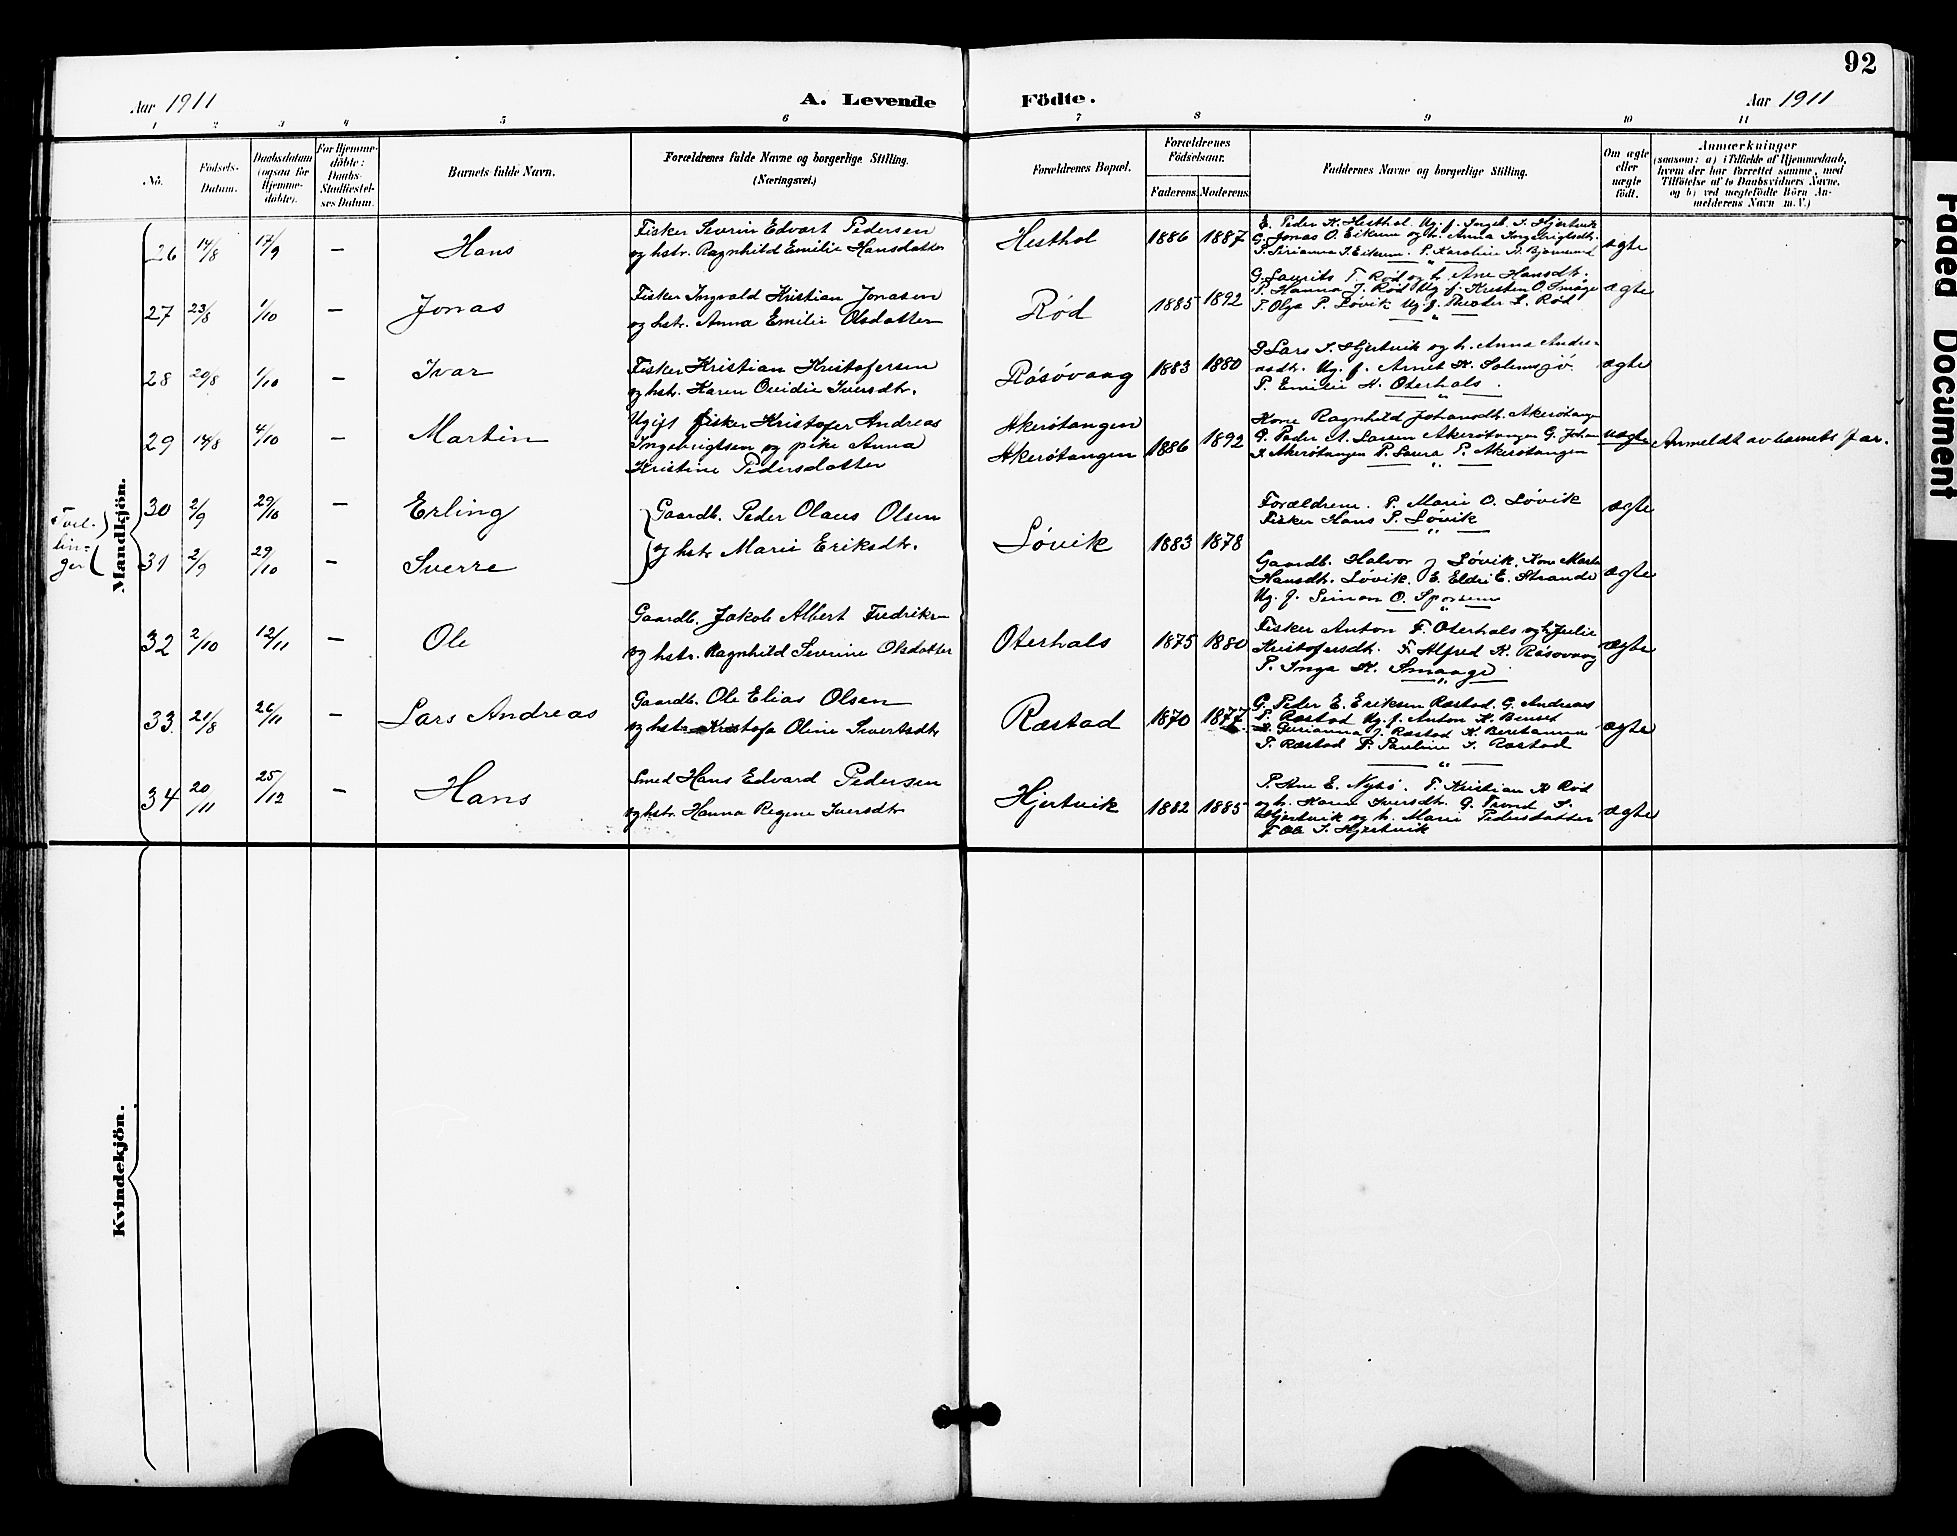 92
Aar 1911
A. Levende
Födte.
Aar 1911
1 2 3 4 5 6 7 8 9 10 11
No.
Födsels-
Datum.
Daabsdatum
(ogsaa for
Hjemme-
döbte).
For Hjemme-
döbte:
Daabs-
Stadfæstel-
ses Datum.
Barnets fulde Navn.
Forældrenes fulde Navne og borgerlige Stilling.
(Næringsvei.)
Forældrenes Bopæl.
Forældrenes
Födselsaar.
Faderens. Moderens.
Faddernes Navne og borgerlige Stilling.
Om ægte
eller
uægte
födt.
Anmærkninger
(saasom: a) i Tilfælde af Hjemmedaab,
hvem der har forrettet samme, med
Tilföielse af to Daabsvidners Navne,
og b) ved uægtefödte Börn An-
melderens Navn m. V.)
Mandkjön.
26 14/8 17/9 — Hans
Fisker Severin Edvart Pedersen
og hstr. Ragnhild Emilie Hansdatter
Hesthol 1886 1887
E. Peder K. Hesthol. Ug. f. Ingeb. I. Hjertvik
G. Jonas O. Eikrem og h. Anna Ingebrigtsdt.
P. Karoline H. Bjørnerud
ægte
27 23/8 1/10 — Jonas
Fisker Ingvald Kristian Jonasen
og hstr. Anna Emilie Olsdatter
Rød 1885 1892
G. Laurits T. Rød og h. Ane Hansdt.
P. Hanna J. Rød Ug. f. Kristen O. Småge
P. Olga P. Løvik Ug. f. Theodor L. Rød
ægte
28 20/8 1/10 — Ivar
Fisker Kristian Kristofersen
og hstr. Karen Ovidie Iversdtr.
Røsøvaag 1883 1880
G Lars I. Hjertvik og h. Anna Andre-
asdt. Ug. f. Arnet K.
P. Emilie H. Oterhals
ægte
29 14/8 4/10 — Martin
Ugift fisker Kristofer Andreas
Ingebrigtsen og pike Anna
Kristine Pedersdatter
Akerøtangen
Akerøtangen 1886 1892
Kone Ragnhild Johansdt. Akerøtangen
G. Peder A. Akerøtangen G. Johan
Akerøtangen P. Laura P. Akerøtangen
uægte Anmeldt av barnets far.
Tvil-
lin-
ger
30 2/9 29/10 — Erling
Gaardb. Peder Olaus Olsen
Forældrene. P. Marie O. Løvik
Fisker Hans P. Løvik
ægte
31 2/9 29/10 — Sverre
og hstr Marie Eriksdtr.
Løvik 1883 1878
Gaardb. Halvor J Løvik. Kone Marta
Hansdt. Løvik. E. Eldri E. Strande
Ug. f. Simon O. Sporsem
ægte
32 2/10 12/11 — Ole
Gaardb. Jakob Albert Fredriksen
og hstr. Ragnhild Severine Olsdatter
Oterhals 1875 1880
Fisker Anton F. Oterhals og h. Julie
Kristofersdt. F. Alfred K. Røsøvaag
P. Inga K. Smaage
ægte
33 21/8 26/11 — Lars Andreas
Gaardb. Ole Elias Olsen
og hstr Kristofa Oline Sivertsdtr
Ræstad 1870 1877
G. Peder E. Eriksen Ræstad. G. Andreas
P. Ræstad Ug. f. Anton K. Benset
Gurianna J. Ræstad K. Beretanna
P. Ræstad P. Pauline I. Ræstad
ægte
34 20/11 25/12 — Hans
Smed Hans Edvard Pedersen
og hstr. Hanna Regine Iversdtr
Hjertvik 1882 1885
P. Ane E. Nybø. F. Kristian K Rød
og h. Karen Iversdt. G. Trond I.
Hjertvik og h. Marie Pedersdatter
F. Ole I. Hjertvik
ægte
Kvindekjön.
Faded Document